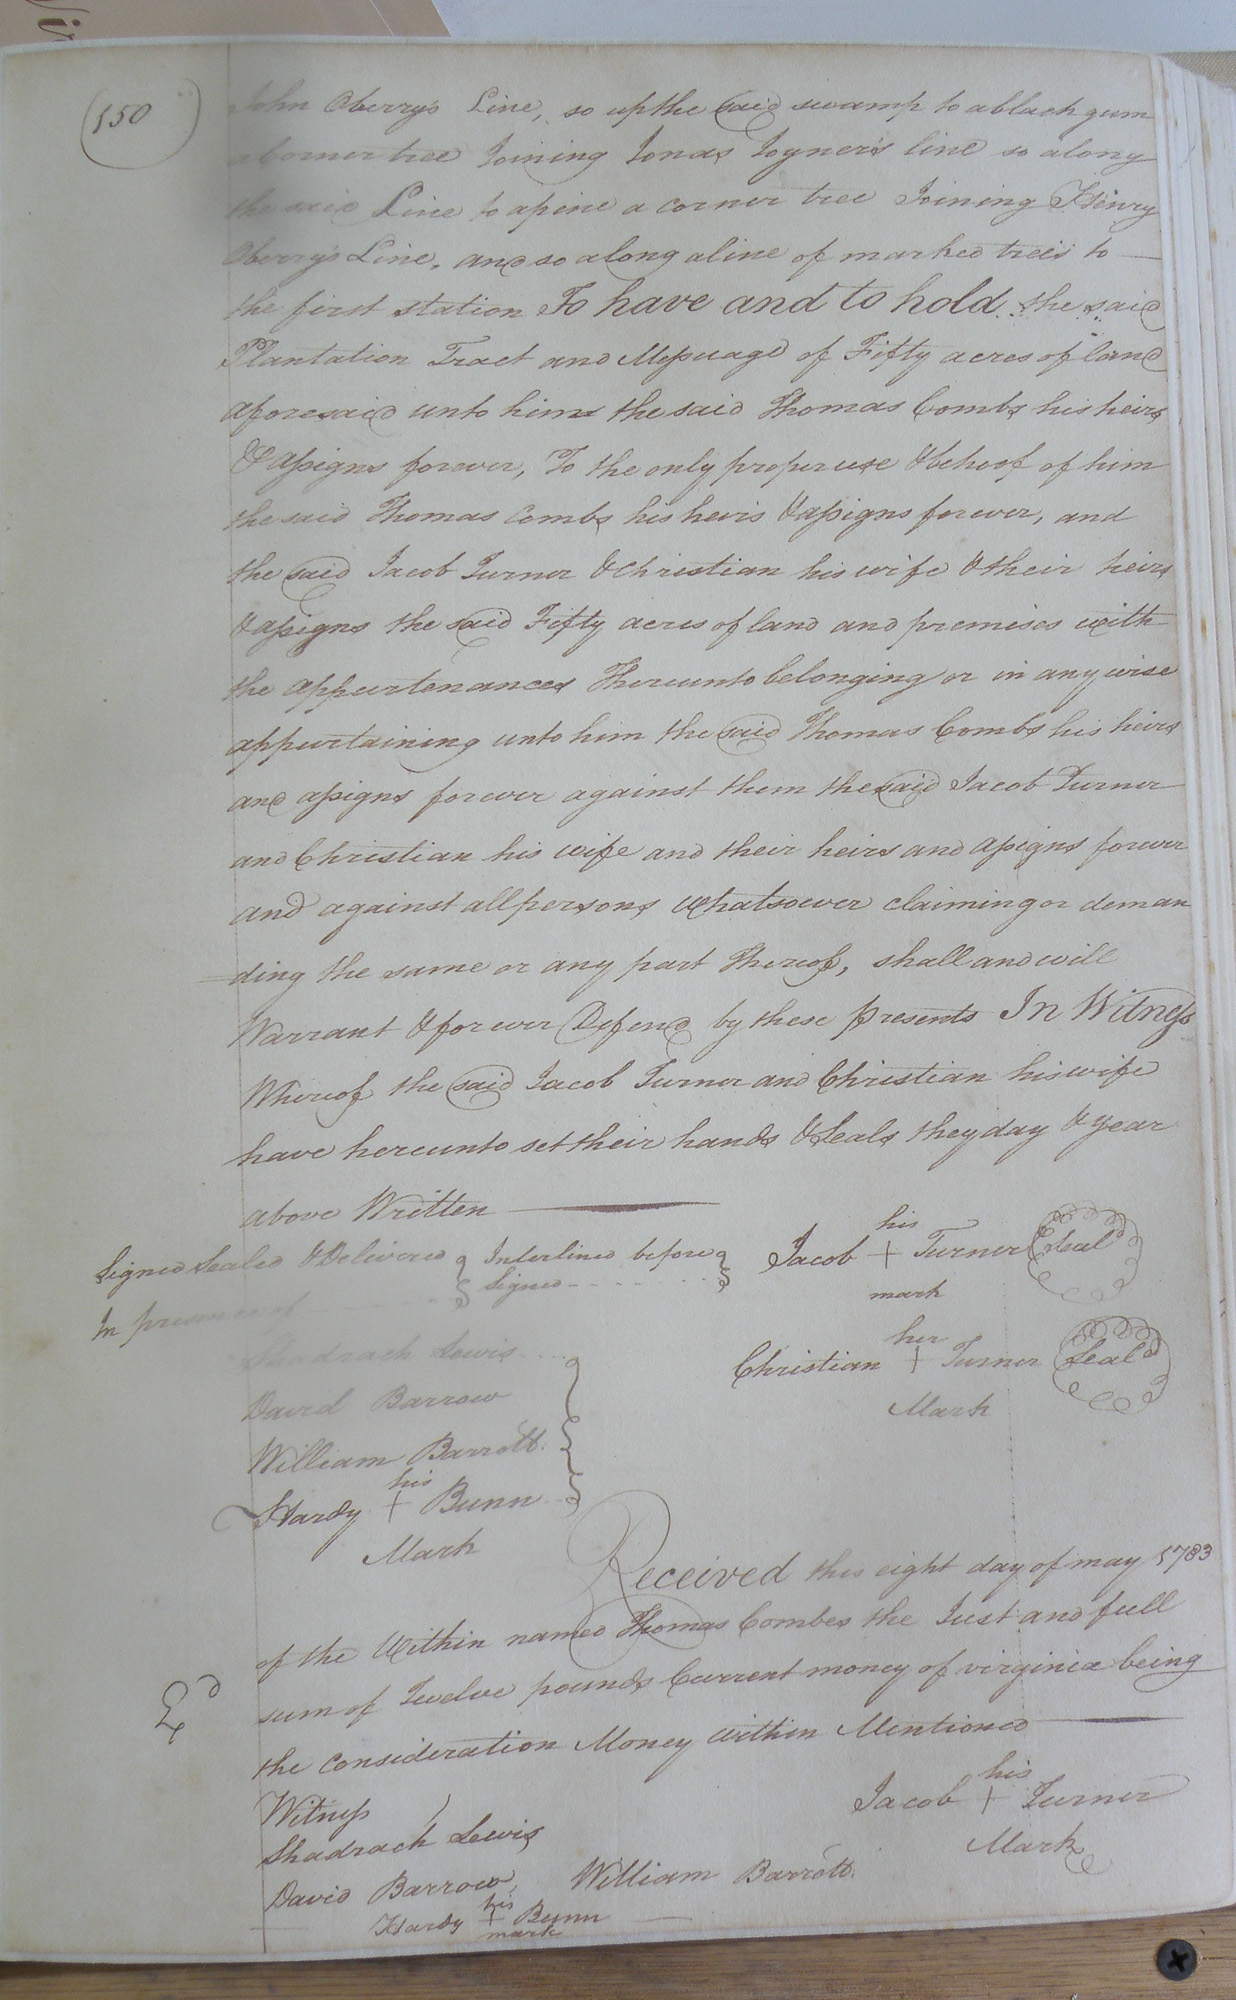 (150)
John Oberry's Line, so up the said swamp to a black gum
a corner tree Joining Jonas Joyner's line so along
the said Line to a pine a corner tree Joining Henry
Oberry's Line, and so along a line of marked trees to
the first station To have and to hold the said
Plantation Tract and Messuage of Fifty acres of land
aforesaid unto him the said Thomas Combs his heirs
& assigns forever, To the only proper use & behoof of him
the said Thomas Combs his heirs & assigns forever, and
the said Jacob Turner & Christian his wife & their heirs
& assigns the said Fifty acres of land and premises with
the appurtenances Thereunto belonging or in any wise
appurtaining unto him the said Thomas Combs his heirs
and assigns forever against them the said Jacob Turner
and Christian his wife and their heirs and assigns forever
and against all persons whatsoever claiming or deman
ding the same or any part Thereof, shall and will
Warrant & forever Defend by these presents In Witness
Whereof the said Jacob Turner and Christian his wife
have hereunto set their hands & Seals they day & year
above Written
Signed Sealed & Delivered Interlined before
In presence of Signed
his
Jacob + Turner Seal'd
mark
her
Christian + Turner Seal'd
Mark
Shadrach Lewis
David Barrow
William Barrott
his
Hardy + Bunn
Mark
Received this eight day of may 1783
of the Within named Thomas Combes the Just and full
sum of Twelve pounds Current money of virginia being
the consideration Money within Mentioned
Witness
his
Jacob + Turner
Mark
Shadrach Lewis
David Barrow William Barrott
his
Hardy + Bunn
mark